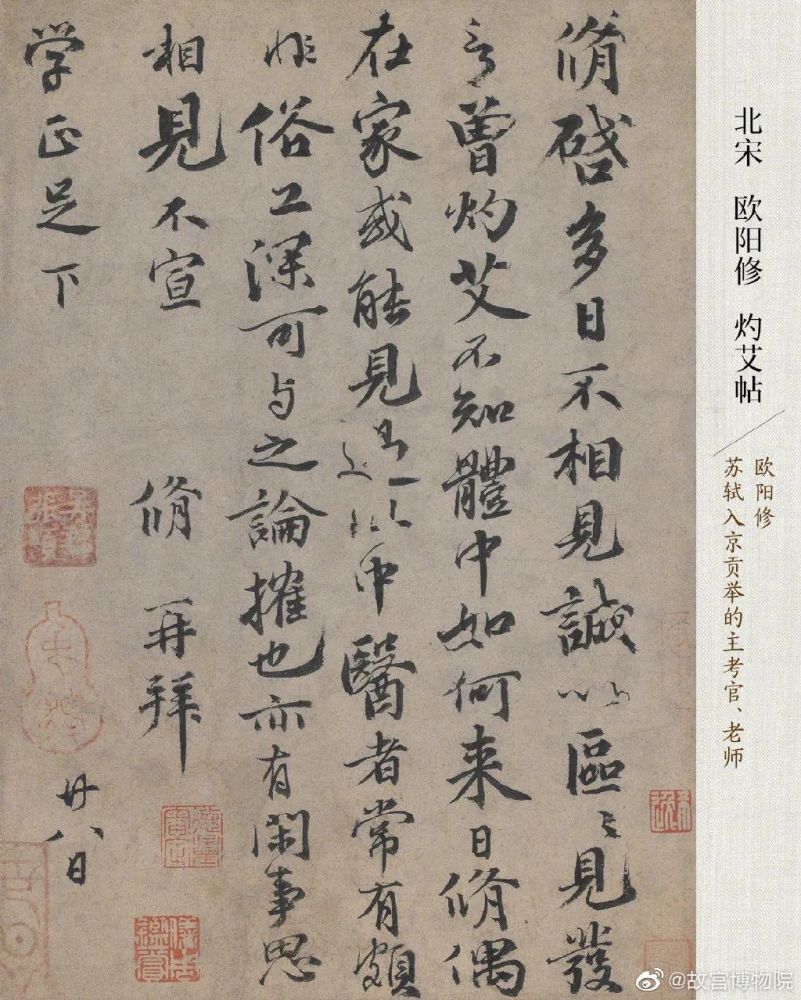 北宋 欧阳修 灼艾帖
欧阳修
苏轼入京贡举的主考官、老师
脩啓多日不相見誠以區〻見發
言曾灼艾不知體中如何来日脩偶
在家或能見過以中醫者常有頗
非俗工深可与之論攉也亦有閑事思
相見不宣 脩再拜
廿八日
学正足下
@故宫博物院